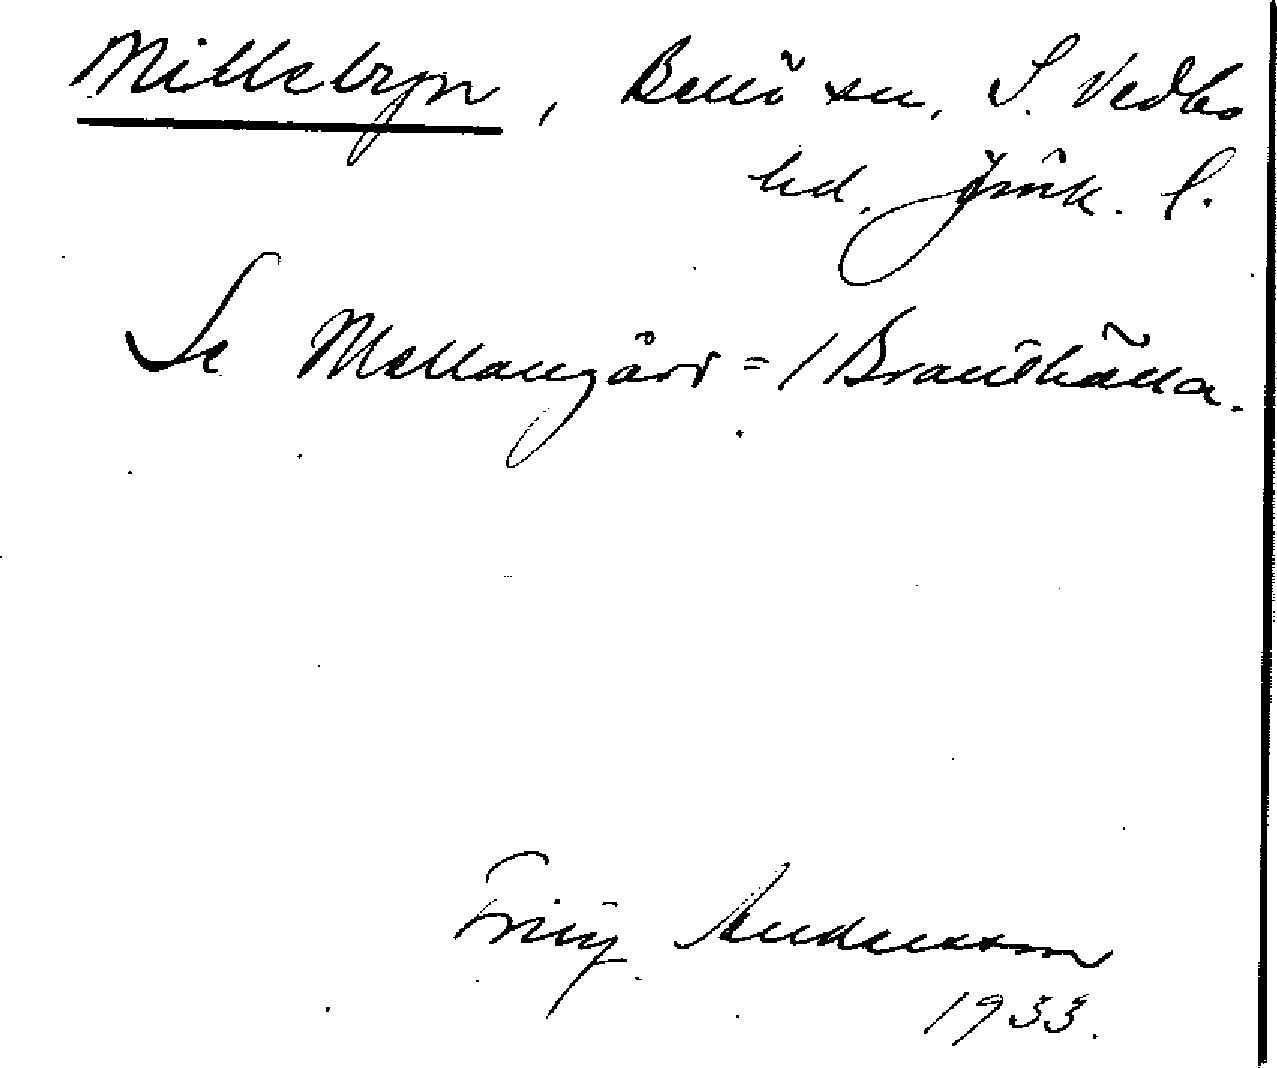 Millebyn, Bellö sn, S. Vedbo
hd. Jönk. l.
Se Mellangård = /Brantkälla.
Andersson
1933.